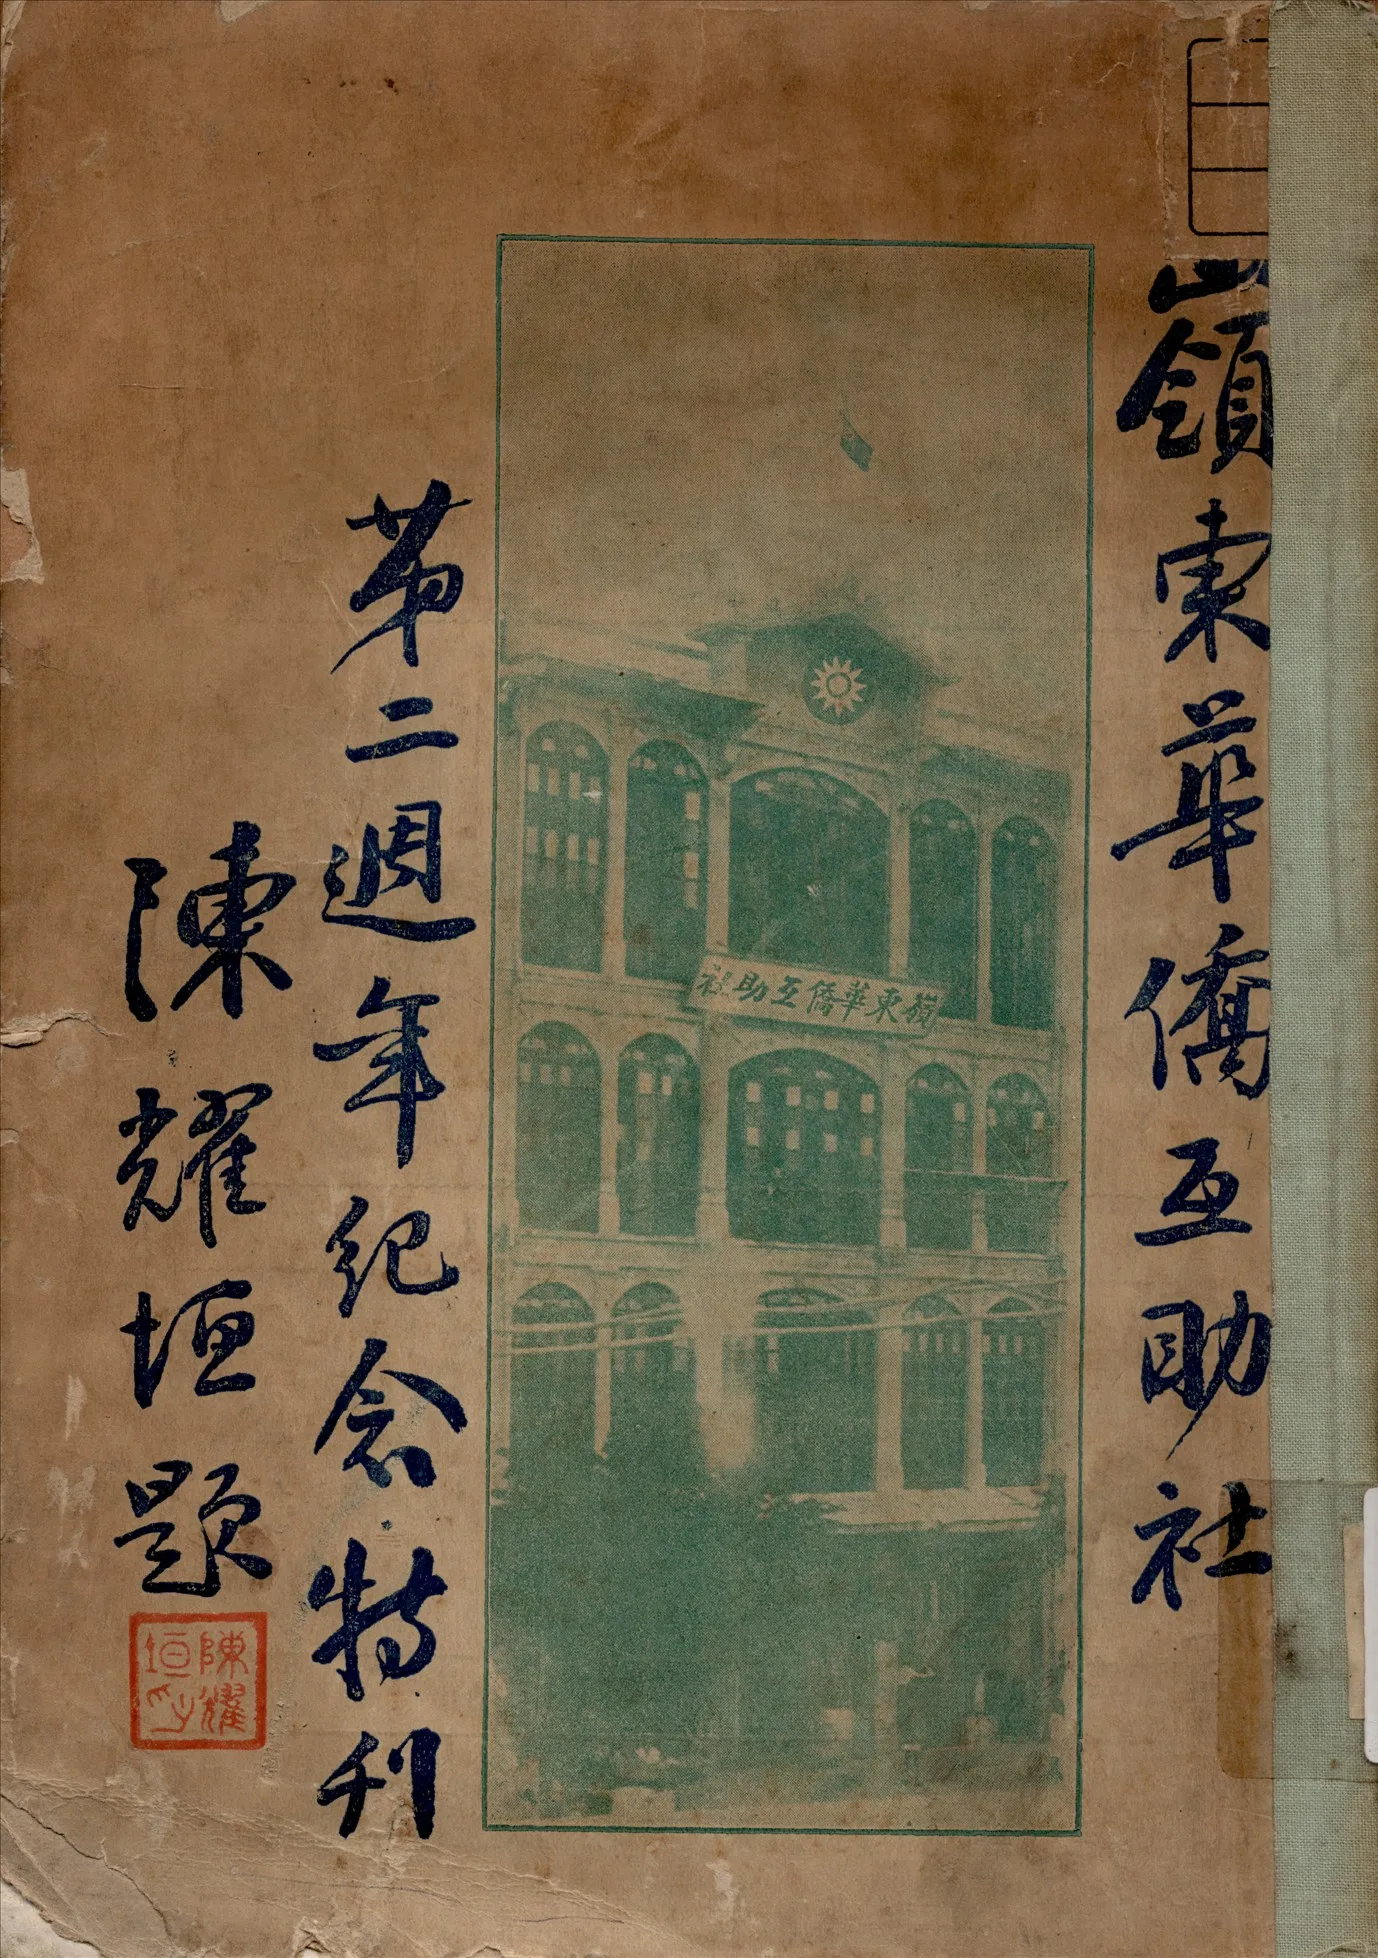 嶺東華僑互助社
嶺東華僑互助社
第二週年紀念特刊
陳耀垣題
陳耀垣印